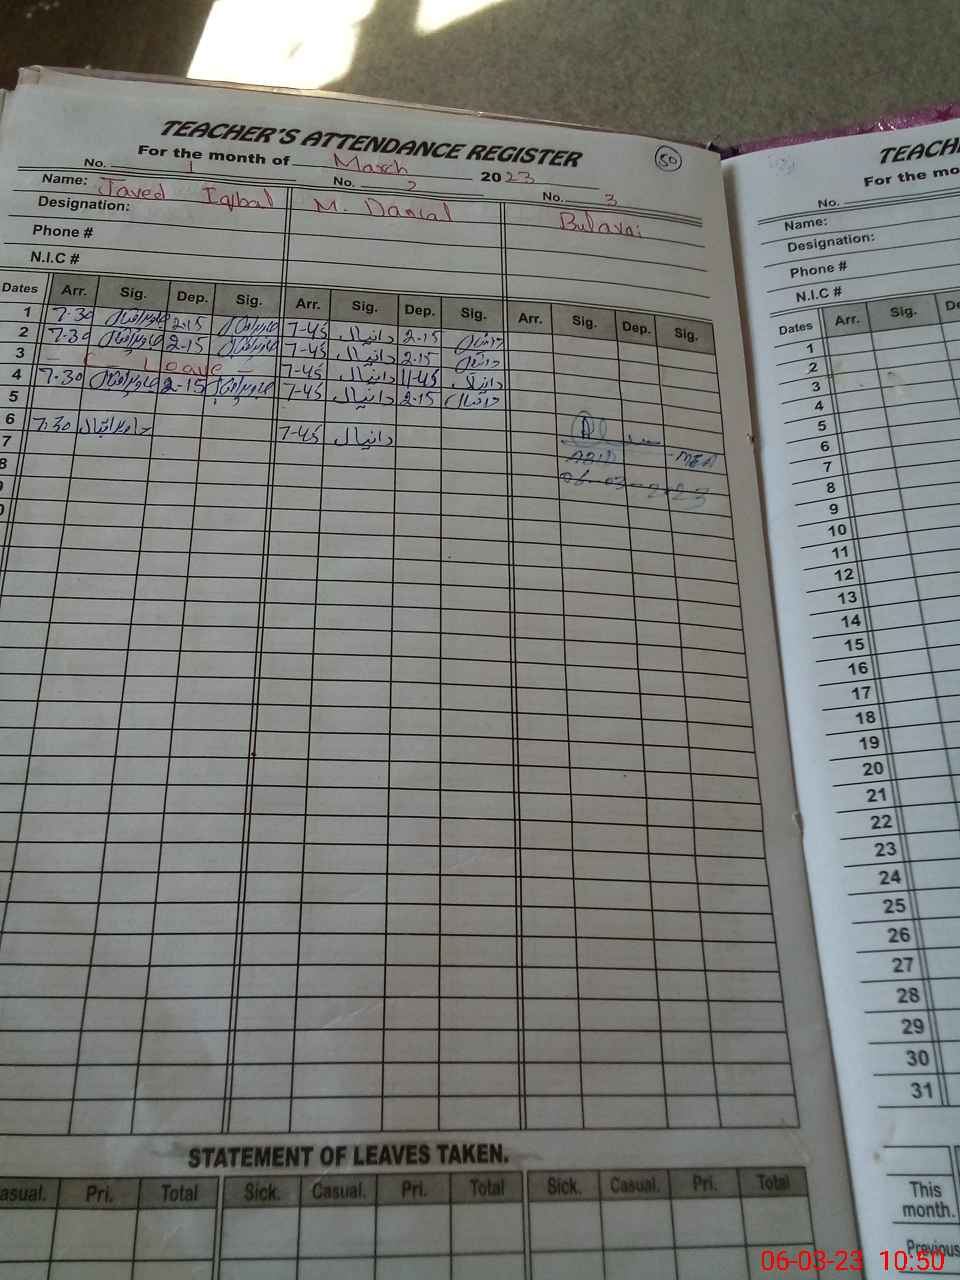 TEACHER'S ATTENDANCE REGISTER
50
For the month of March 2023
No. 1 No. 2 No. 3
Name: Javed Iqbal M. Danial
Designation:
Phone #
N.I.C #
Dates Arr. Sig. Dep. Sig. Arr. Sig. Dep. Sig. Arr. Sig. Dep. Sig.
1 7-30 جاوید اقبال 2-15 جاوید اقبال 7-45 دانیال 2-15 دانیال
2 7-30 جاوید اقبال 2-15 جاوید اقبال 7-45 دانیال 2-15 دانیال
3 - C Leave - 7-45 دانیال 11-45 دانیال
4 7-30 جاوید اقبال 2-15 جاوید اقبال 7-45 دانیال 2-15 دانیال
5
6 7-30 جاوید اقبال 7-45 دانیال
7
8
MEA
06-03-2023
STATEMENT OF LEAVES TAKEN.
asual. Pri. Total Sick. Casual. Pri. Total Sick. Casual. Pri. Total
TEACH
For the mo
No.
Name:
Designation:
Phone #
N.I.C #
Dates Arr. Sig. De
1
2
3
4
5
6
7
8
9
10
11
12
13
14
15
16
17
18
19
20
21
22
23
24
25
26
27
28
29
30
31
This
month.
Previous
06-03-23 10:50